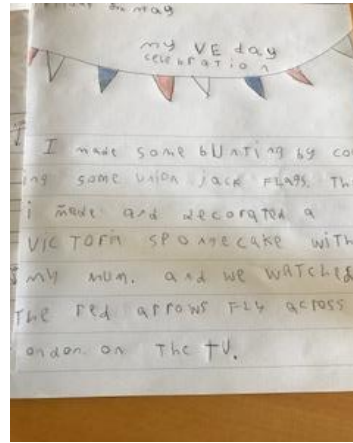 on May
my VE day
celebration
I made some bUnTing by co
ing some Union jack FLAgs. Th
i made and decorated a
VICTORiA SPongecake wiTh
my mUm. and we WATChed
The red arrows FLy across
ondon on The TV.